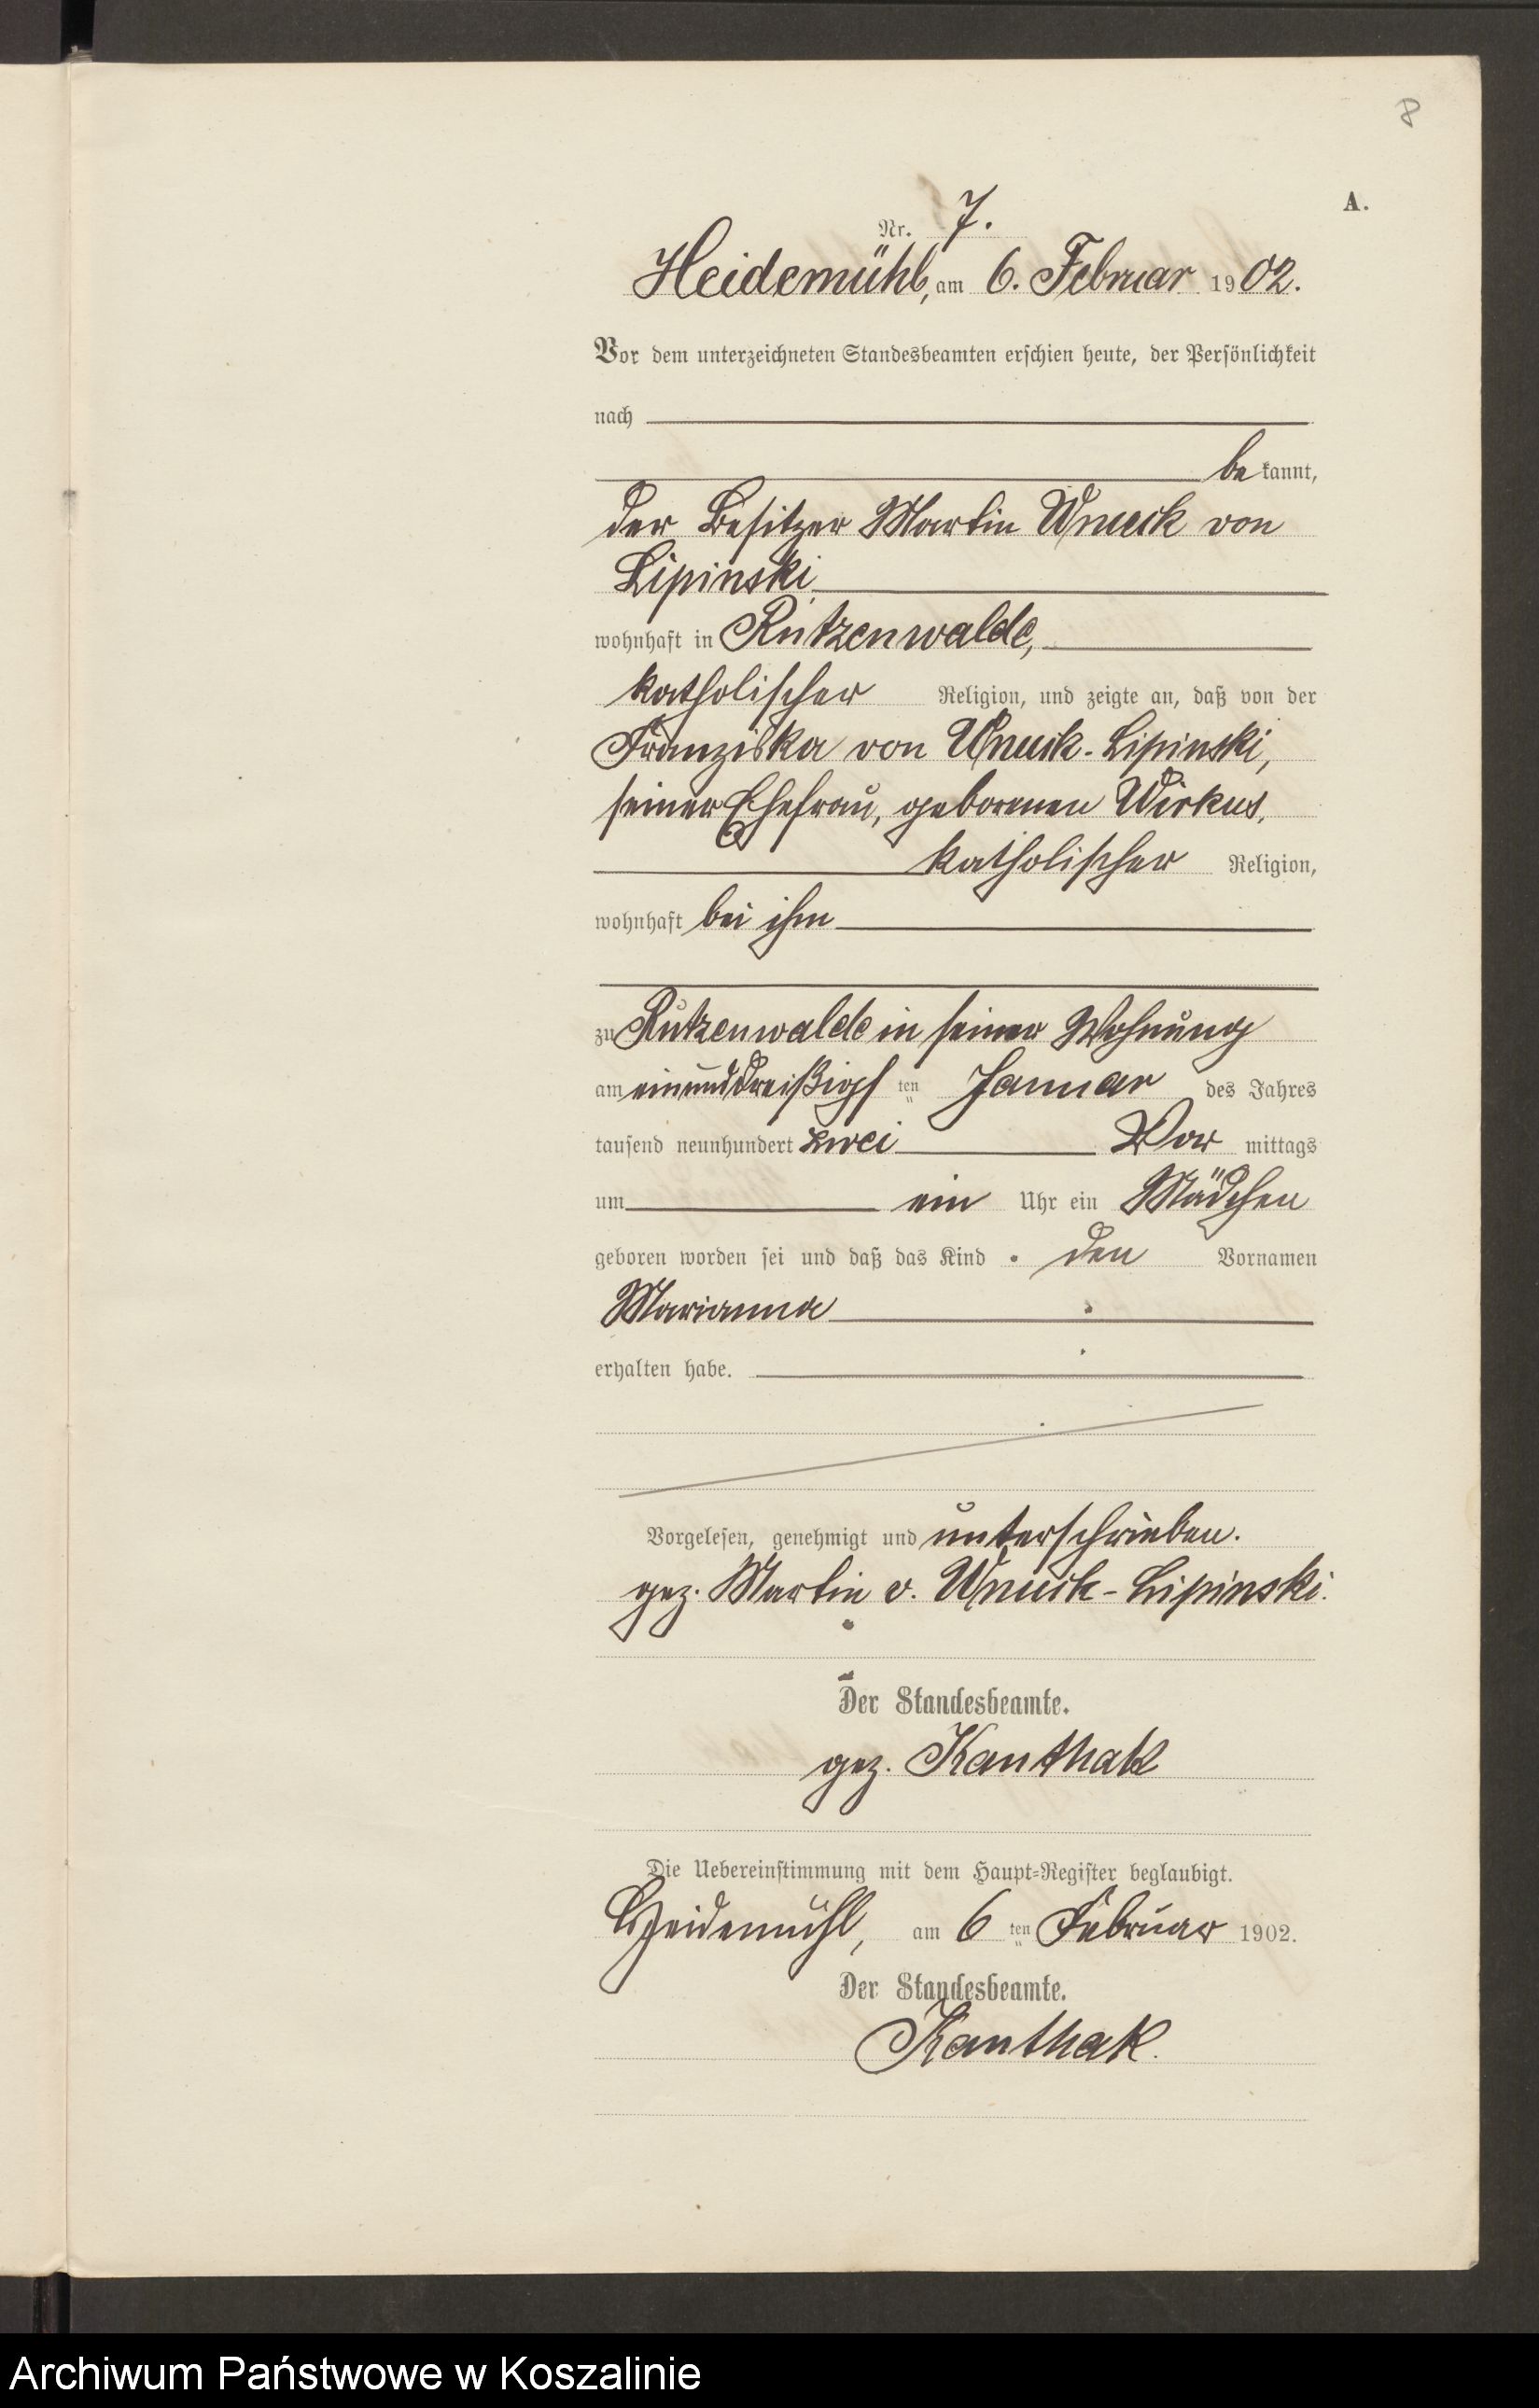 8
A.
Nr. 7.
Heidemühl, am 6. Februar 1902.
Vor dem unterzeichneten Standesbeamten erschien heute, der Persönlichkeit
nach
bekannt,
der Besitzer Martin Wnuck von
Lipinski
wohnhaft in Rutzenwalde,
katholischer Religion, und zeigte an, daß von der
Franziska von Wnuck-Lipinski,
seiner Ehefrau, geborenen Wirkus,
katholischer Religion,
wohnhaft bei ihm
zu Rutzenwalde in seiner Wohnung
am einunddreißigsten Januar des Jahres
tausend neunhundert zwei Vormittags
um ein Uhr ein Mädchen
geboren worden sei und daß das Kind den Vornamen
Marianna
erhalten habe.
Vorgelesen, genehmigt und unterschrieben.
gez. Martin v. Wnuck-Lipinski.
Der Standesbeamte.
gez. Kanthak
Die Uebereinstimmung mit dem Haupt-Register beglaubigt.
Heidemühl, am 6ten Februar 1902.
Der Standesbeamte.
Kanthak.
Archiwum Państwowe w Koszalinie